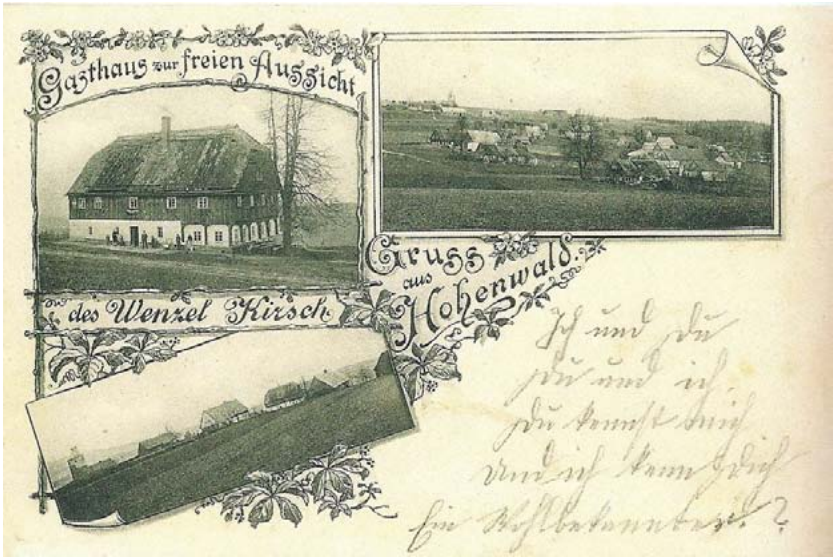 Gasthaus zur freien Aussicht
des Wenzel Kirsch
Gruss
aus
Hohenwald.
Ich und Du
Du und ich.
Du kennst mich
Und ich kenn Dich
Ein Wohlbekannter. ?